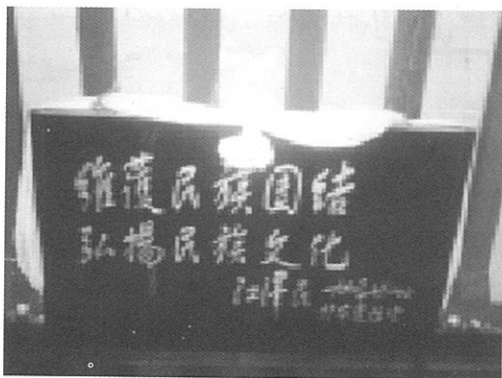 维护民族团结
弘扬民族文化
江泽民